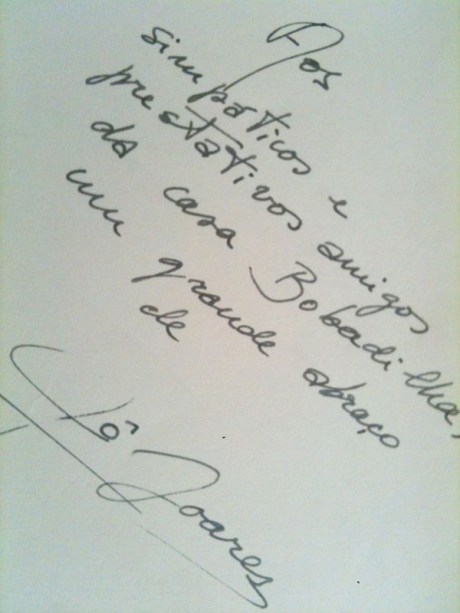 Aos
simpáticos e
prestativos amigos
da casa Bobadilha,
um grande abraço
de
Jô Soares